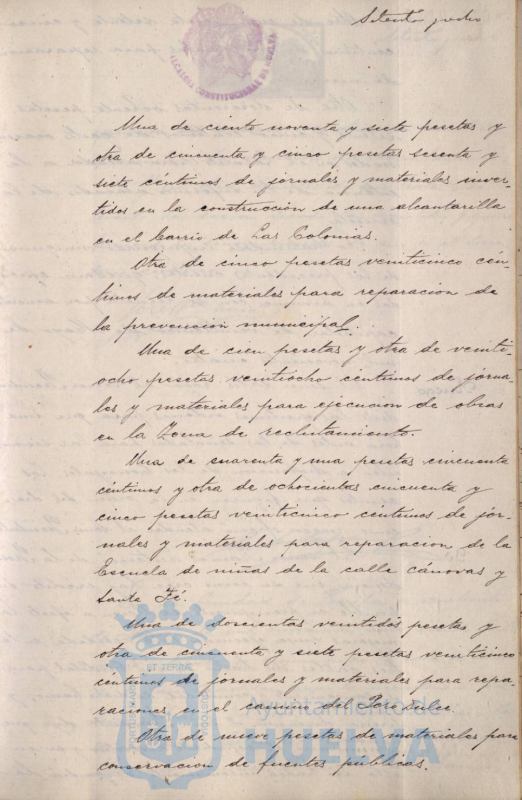 Setenta y ocho
ALCALDIA CONSTITUCIONAL DE HUELVA
Una de ciento noventa y siete pesetas y
otra de cincuenta y cinco pesetas sesenta y
siete céntimos de jornales y materiales inver-
tidos en la construcción de una alcantarilla
en el barrio de Las Colonias.
Otra de cinco pesetas veinticinco cén-
timos de materiales para reparacion de
la prevención municipal.
Una de cien pesetas y otra de veinti-
ocho pesetas veintiocho céntimos de jorna-
les y materiales para ejecucion de obras
en la Zona de reclutamiento.
Una de cuarenta y una pesetas cincuenta
céntimos y otra de ochocientas cincuenta y
cinco pesetas veinticinco céntimos de jor-
nales y materiales para reparacion de la
Escuela de niñas de la calle Cánovas y
Santa Fé.
Una de doscientas veintidos pesetas y
otra de cincuenta y siete pesetas veinticinco
céntimos de jornales y materiales para repa-
raciones en el camino del Pozo dulce.
Otra de nueve pesetas de materiales para
conservacion de fuentes públicas.
Ayuntamiento de
HUELVA